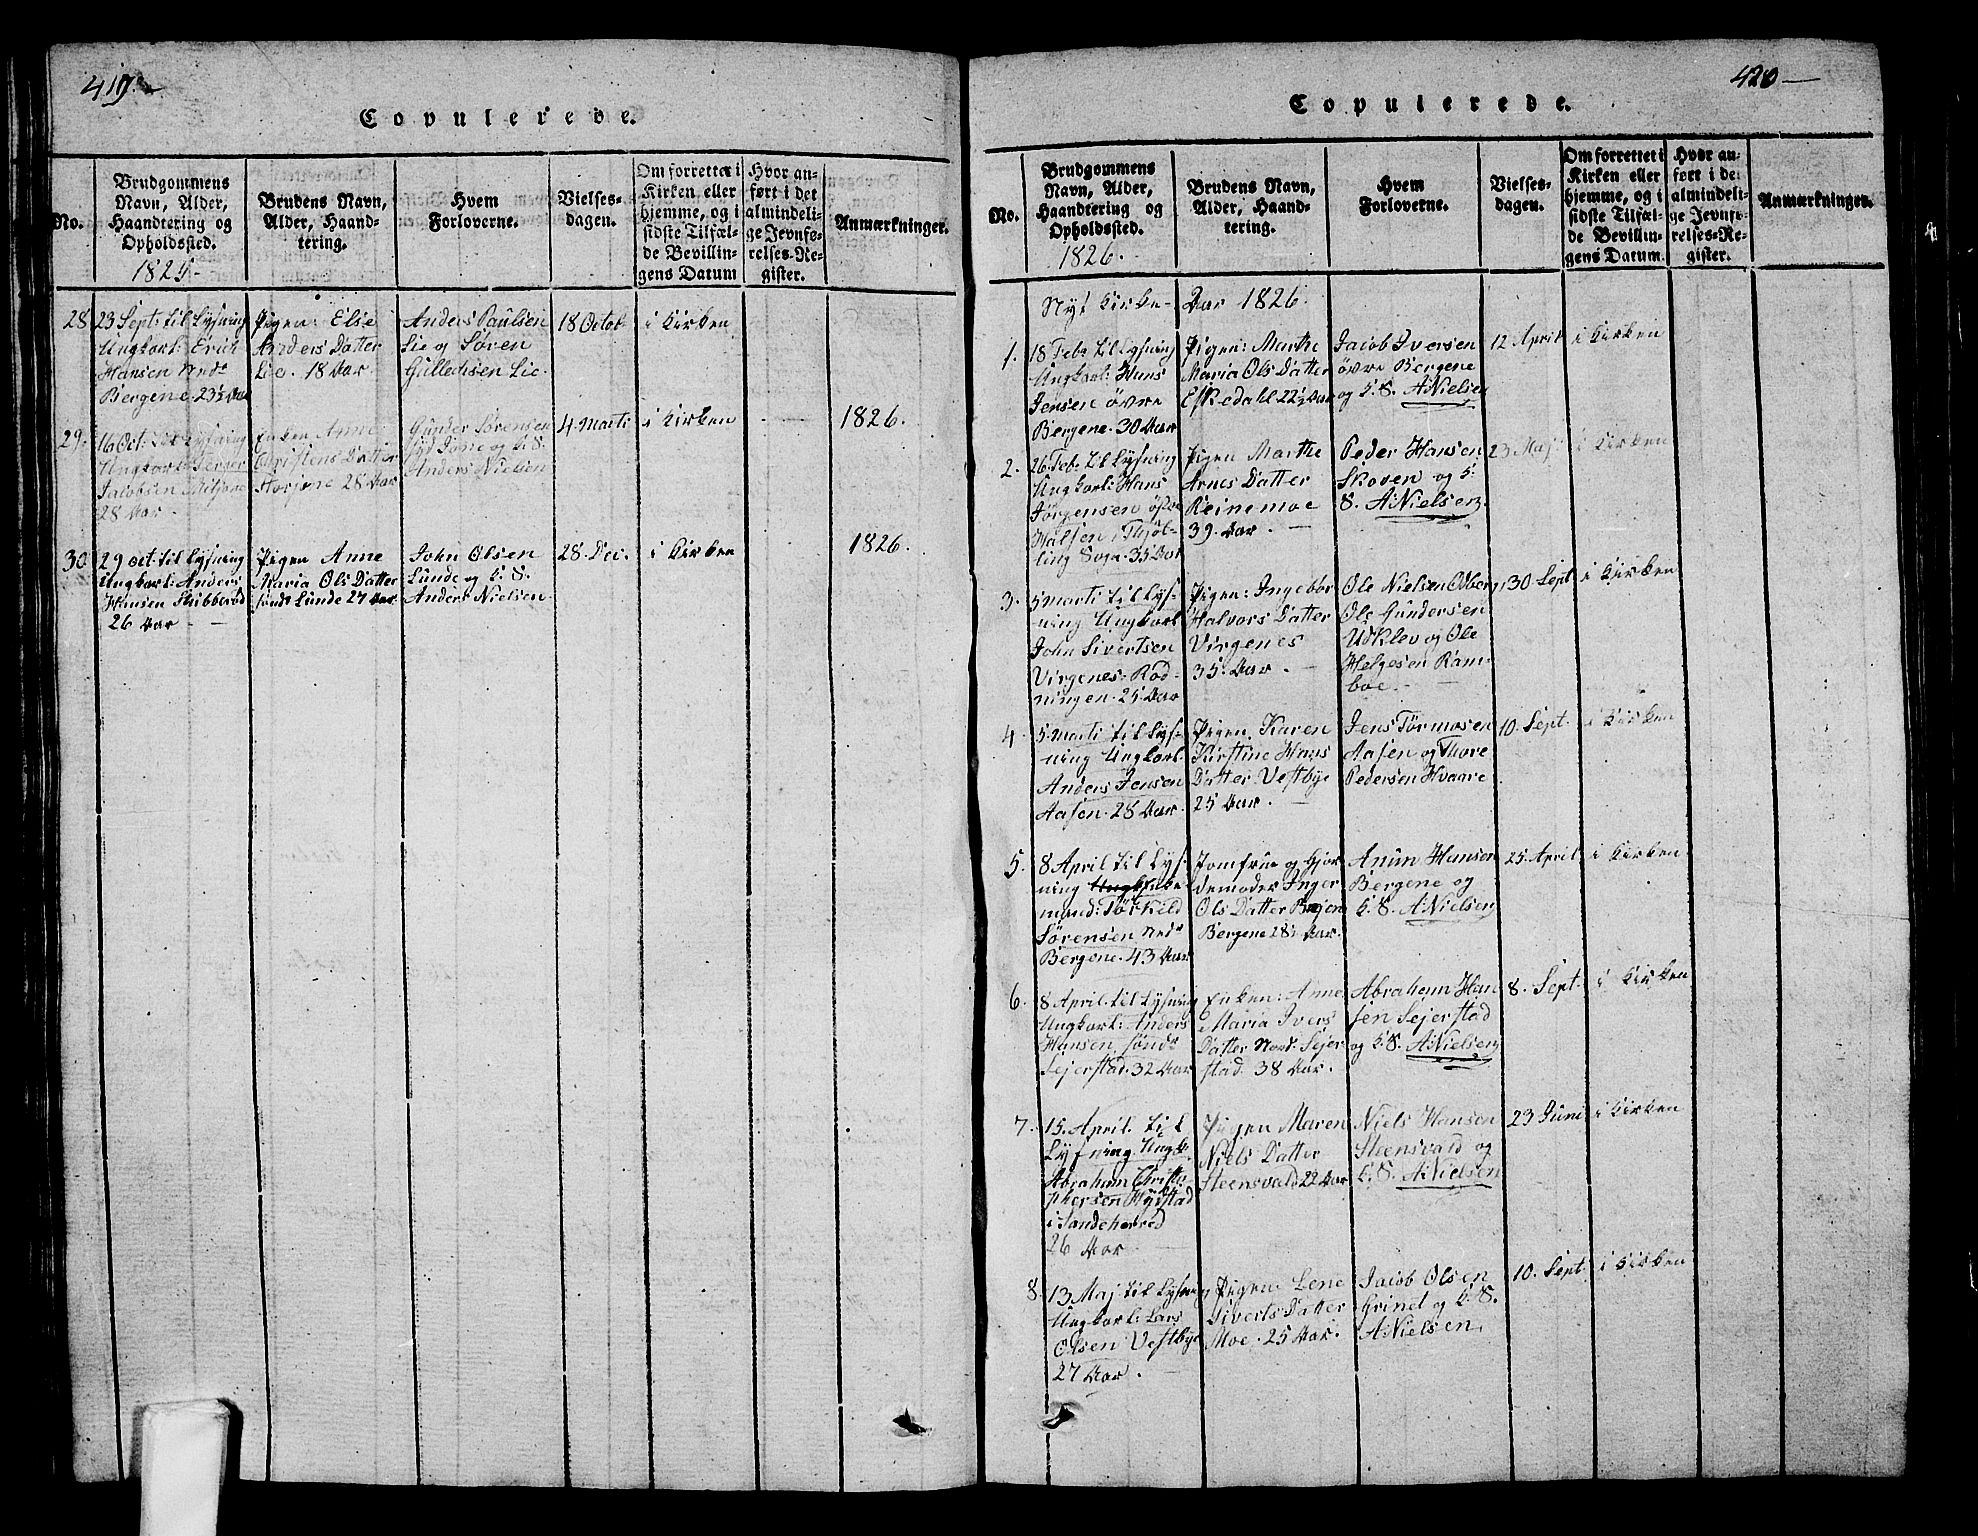 419.
Copulerede.
No.
Brudgommens
Navn, Alder,
Haandtering og
Opholdssted.
1825.
Brudens Navn,
Alder, Haand-
tering.
Hvem
Forloverne.
Vielses-
dagen.
Om forrettet i
Kirken eller
hjemme, og i
sidste Tilfæl-
de Bevillin-
gens Datum
Hvor an-
ført i det
almindeli-
ge Jevnfø-
relses-Re-
gister.
Anmærkninger.
28
23 Sept: til Lysning
Ungkarl: Erich
Hansen Nedr
Bergene. 23½ Aar
Pigen: Else
Anders Datter
Lie. 18 Aar
Anders Paulsen
Lie og Sören
Gullechsen Lie.
18 Octob
i Kirken
29.
16 Oct: til Lysning
Ungkarl: Terjer
Jacobsen
28 Aar.
Enken Anne
Christens Datter
28 Aar
Gunder Sörensen
og K: S.
Anders Nielsen
4. Marti
i Kirken
1826.
30
29 Oct til Lysning
Ungkarl: Anders
Hansen Skibberöd
26 Aar
Pigen Anne
Maria Ols Datter
sönd: Lunde 27 Aar.
John Olsen
Lunde og K: S.
Anders Nielsen.
28. Dec.
i Kirken
1826.
420
Copulerede.
No.
Brudgommens
Navn, Alder,
Haandtering og
Opholdssted.
1826.
Brudens Navn,
Alder, Haand-
tering.
Hvem
Forloverne.
Vielses-
dagen.
Om forrettet i
Kirken eller
hjemme, og i
sidste Tilfæl-
de Bevillin-
gens Datum.
Hvor an-
ført i det
almindeli-
ge Jevnfø-
relses-Re-
gister.
Anmærkninger.
Nyt Kirke- Aar 1826.
1.
18 Feb: til Lysning
Ungkarl: Hans
Jensen övre
Bergene. 30 Aar
Pigen: Marthe
Maria Ols Datter
Eskedahl 22½ Aar
Jacob Iversen
övre Bergene
og K: S. A: Nielsen
12 April
i Kirken
2.
26 Feb: til Lysning
Ungkarl: Hans
Jörgensen östre
Halsen i Thjöl-
ling Sogn. 35 Aar
Pigen Marthe
Arnes Datter
Reinemoe
39. Aar.
Peder Hansen
Skoven og K:
S. A: Nielsen.
23 Maj.
i Kirken
3.
5 Marti til Lys-
ning Ungkarl
John Sivertsen
Virgenes: Rod-
ningen. 25 Aar
Pigen: Ingebor
Halvors Datter
Virgenes
35. Aar.
Ole Nielsen Odberg,
Ole Gundersen
Udklev og Ole
Helgesen Ram-
boe.
30 Sept
i Kirken
4.
5. Marti til Lys-
ning Ungkarl
Anders Jensen
Aasen. 28 Aar.
Pigen. Karen
Kirstine Hans
Datter Vestbye
25 Aar.
Jens Törmosen
Aasen og Thore
Pedersen Hvaare
10. Sept.
i Kirken
5.
8 April til Lys-
ning Enke-
mand: Törkild
Sörensen Nedr
Bergene. 43 Aar
Jomfrue og Gjor
demoder Inger
Ols Datter
Bergene 28½ Aar.
Anun Hansen
Bergene og
K: S. A: Nielsen
25 April
i Kirken
6.
8 April til Lysning
Ungkarl: Anders
Hansen, söndr
Sejerstad. 32 Aar
Enken: Anne
Maria Ivers
Datter Nord: Sejer
stad. 38 Aar.
Abraham Han
sen Sejerstad
og K: S. A: Nielsen
8. Sept.
i Kirken
7.
15. April til
Lysning. Ungk.
Abraham Christo-
phersen Hystad
i Sandeherred
26 Aar
Pigen Maren
Niels Datter
Steensvald 22 Aar
Niels Hansen
Steensvald og
K: S. A: Nielsen
23 Juni
i Kirken
8.
13 Maj til Lysning
Ungkarl: Lars
Olsen Vestbye
27 Aar.
Pigen Lene
Siverts Datter
Moe. 25 Aar.
Jacob Olsen
Grinet og K: S.
A: Nielsen
10. Sept.
i Kirken